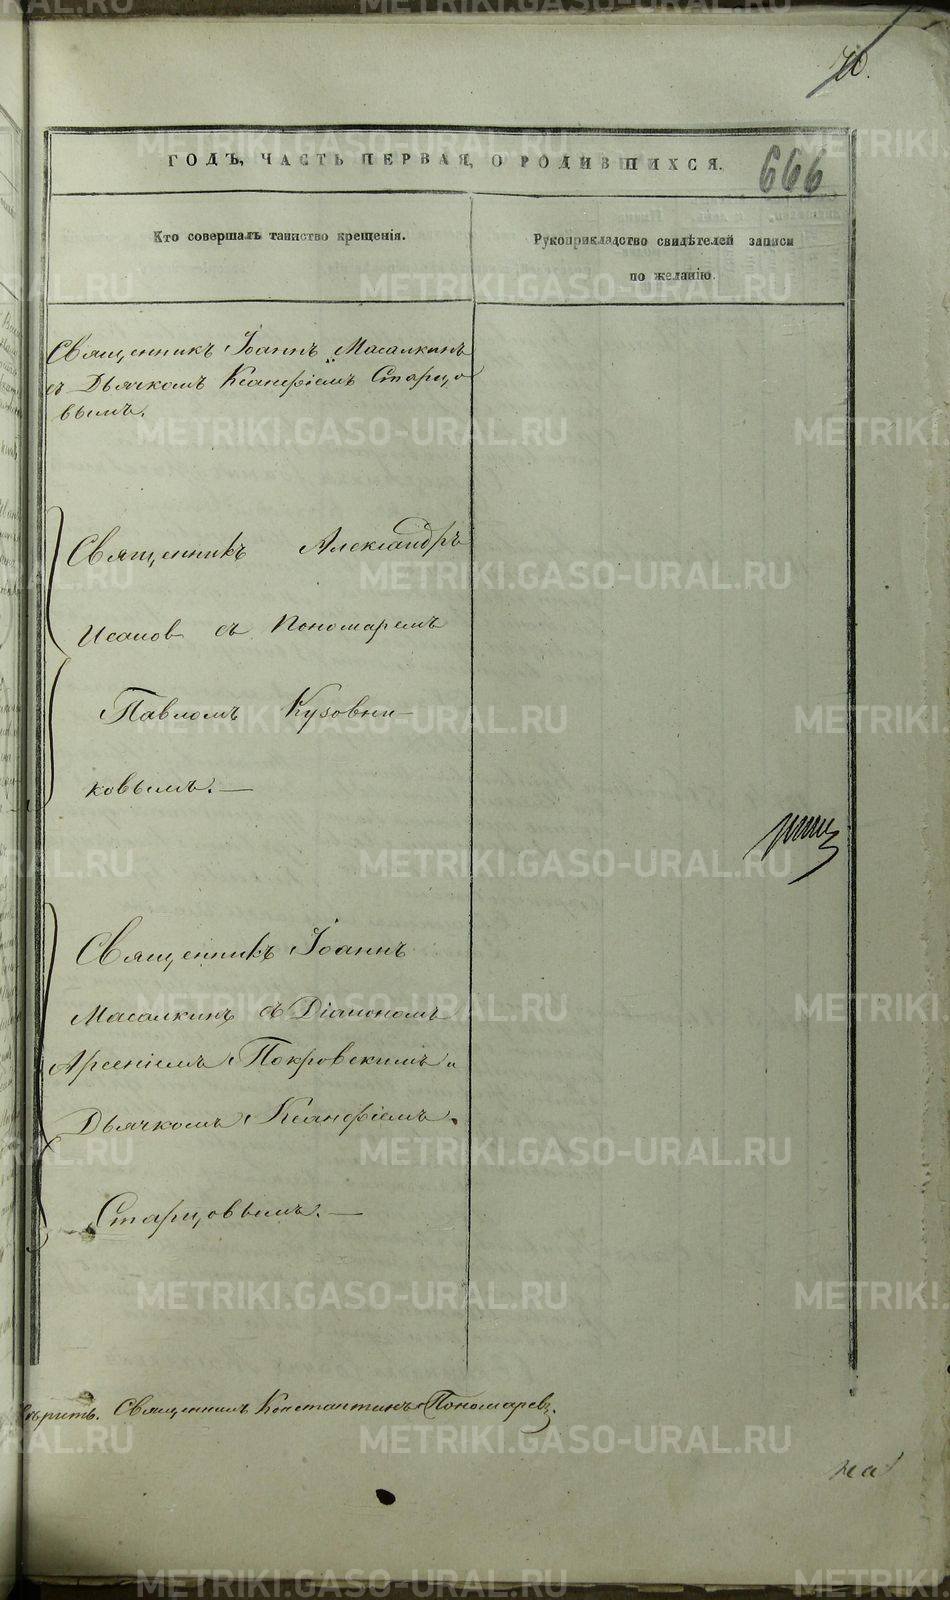 70.
ГОДЪ, ЧАСТЬ ПЕРВАЯ, О РОДИВШИХСЯ.
666
Кто совершалъ таинство крещенія.
Рукоприкладство свидѣтелей записи
по желанію.
Священникъ Іоаннъ Масалкинъ
съ Дьячкомъ Ксанфіемъ Старцо
вымъ.
Священникъ Александръ
Исаковъ съ Пономаремъ
Павломъ Кузовни-
ковымъ. —
Священникъ Іоаннъ
Масалкинъ съ Діакономъ
Арсеніемъ Покровскимъ и
Дьячкомъ Ксанфіемъ
Старцовымъ. —
Священникъ Константинъ Пономаревъ.
на
METRIKI.GASO-URAL.RU